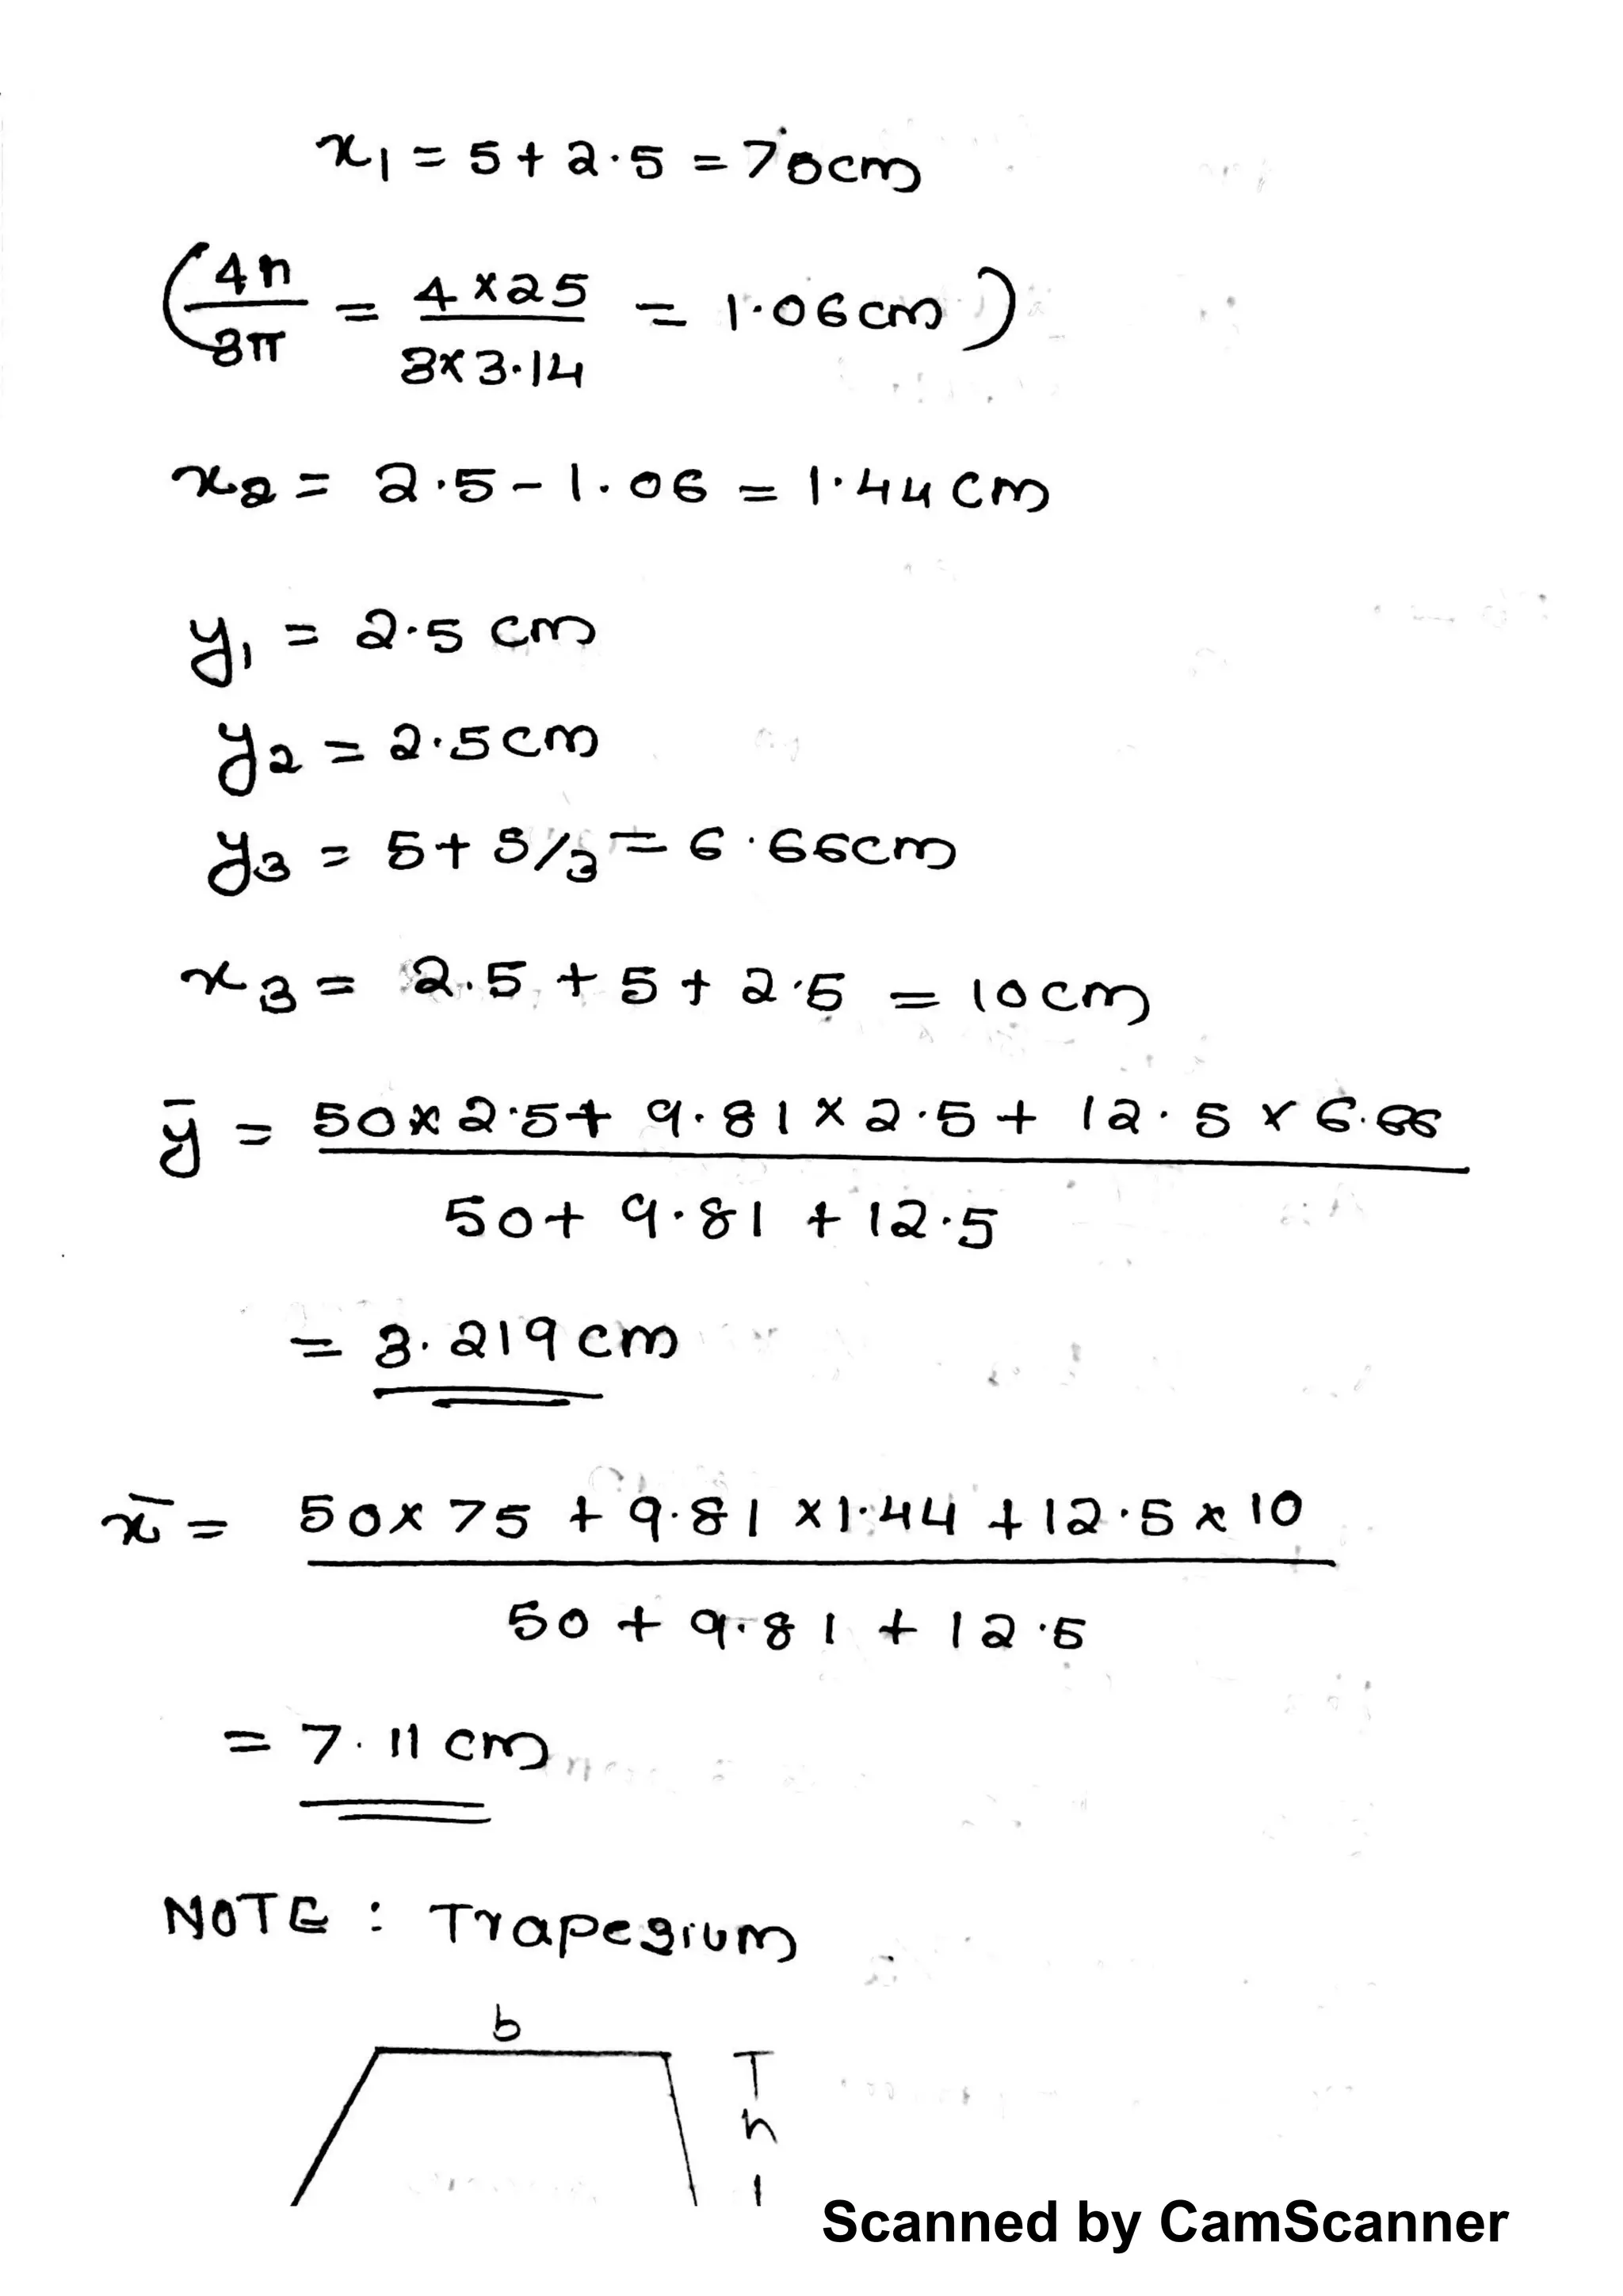 x₁ = 5 + 2.5 = 75cm
(4r/3π = 4×25/3×3.14 = 1.06cm)
x₂ = 2.5 - 1.06 = 1.44 cm
y₁ = 2.5 cm
y₂ = 2.5cm
y₃ = 5 + 5/3 = 6.66cm
x₃ = 2.5 + 5 + 2.5 = 10cm
ȳ = 50×2.5 + 9.81×2.5 + 12.5×6.66
50 + 9.81 + 12.5
= 3.219cm
x̄ = 50×75 + 9.81×1.44 + 12.5×10
50 + 9.81 + 12.5
= 7.11cm
NOTE : Trapezium
b
h
Scanned by CamScanner